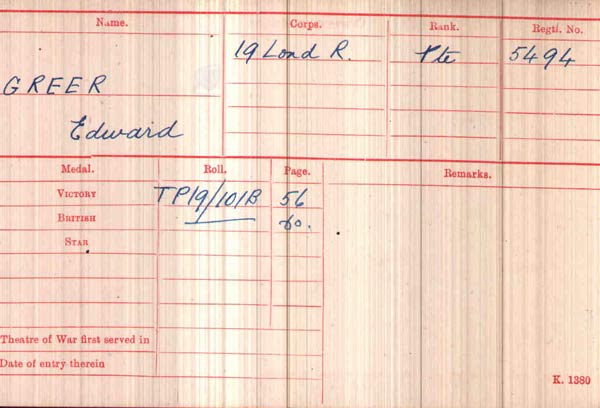 Name. Corps. Rank. Regtl. No.
19 Lond R. Pte 5494
GREER
Edward
Medal. Roll. Page. Remarks.
VICTORY TP19/101B 56
BRITISH do.
STAR
Theatre of War first served in
Date of entry therein
K. 1380